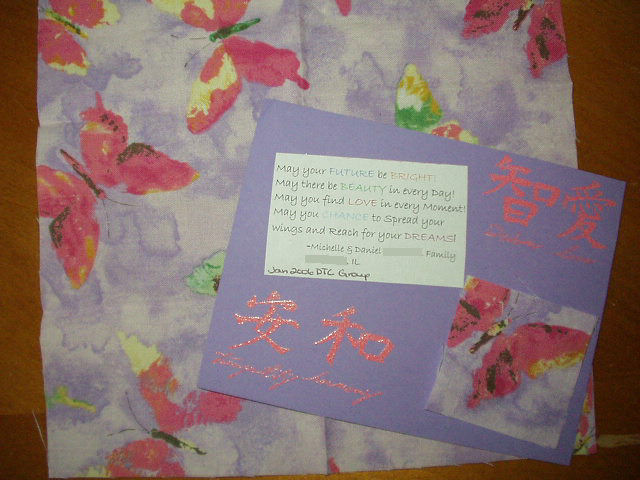 May your FUTURE be BRIGHT!
May there be BEAUTY in every Day!
May you find LOVE in every Moment!
May you CHANCE to Spread your
wings and Reach for your DREAMS!
-Michelle & Daniel Family
, IL
Jan 2006 DTC Group
智愛
安和